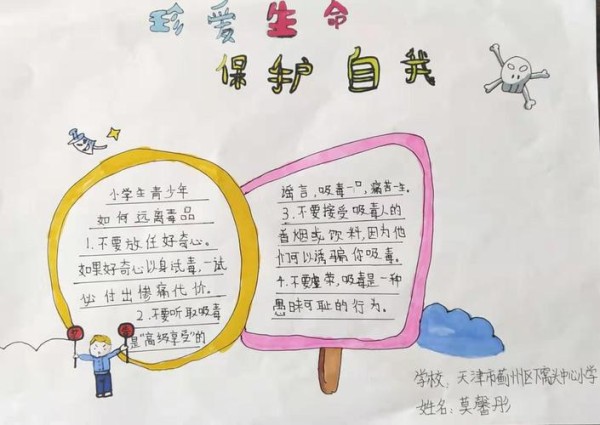 珍爱生命
保护自我
小学生青少年
如何远离毒品
1.不要放任好奇心。
如果好奇心以身试毒,一试
必付出惨痛代价。
2.不要听取吸毒
是"高级享受"的
谣言,吸毒一口,痛苦一生。
3.不要接受吸毒人的
香烟或饮料,因为他
们可以诱骗你吸毒。
4.不要虚荣,吸毒是一种
愚昧可耻的行为。
学校:天津市蓟州区下窝头中心小学
姓名:莫馨彤